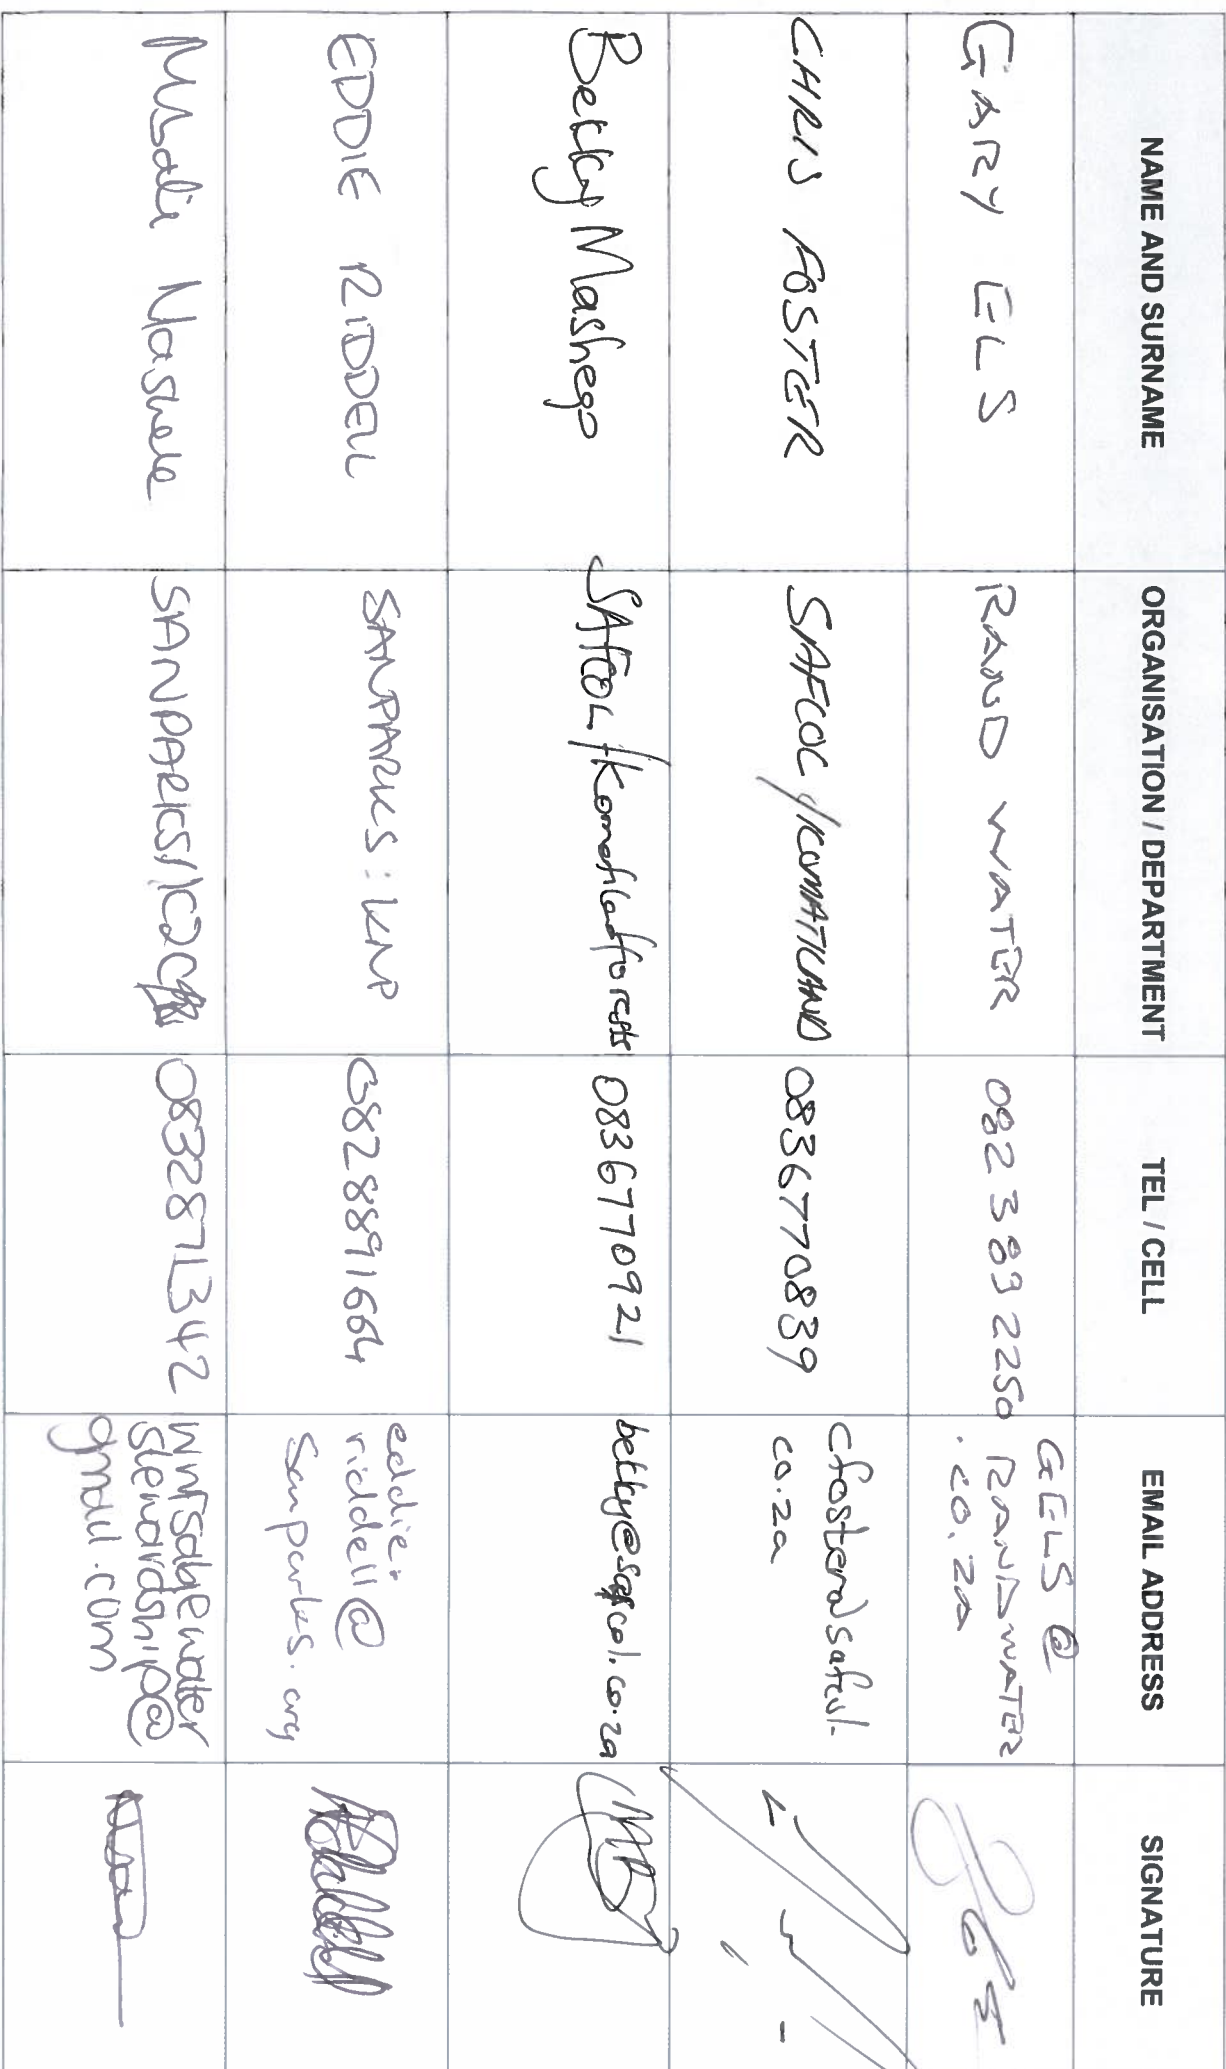 NAME AND SURNAME ORGANISATION / DEPARTMENT TEL / CELL EMAIL ADDRESS SIGNATURE
GARY ELS RAND WATER 082 389 2250 GELS @
RANDWATER
.co.za
CHRIS FOSTER SAFCOL / KOMATILAND 0836770839 cfoster@safcol.
co.za
Betky Mashego SAFCOL / Komatilandforests 0836770921 betky@safcol.co.za
EDDIE RIDDELL SANPARKS : KNP 0828891664 eddie.
riddell@
sanparks.org
Nashele SANPARKS/K2C 0832871342
stewardship@
gmail.com